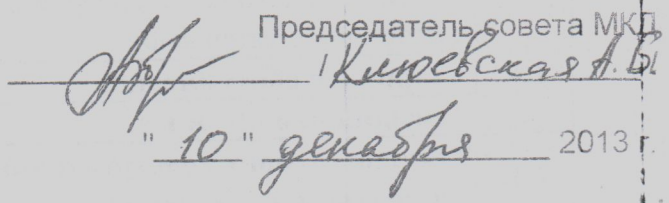 Председатель совета МКД
/ Клюевская А.
" 10 " декабря 2013 г.